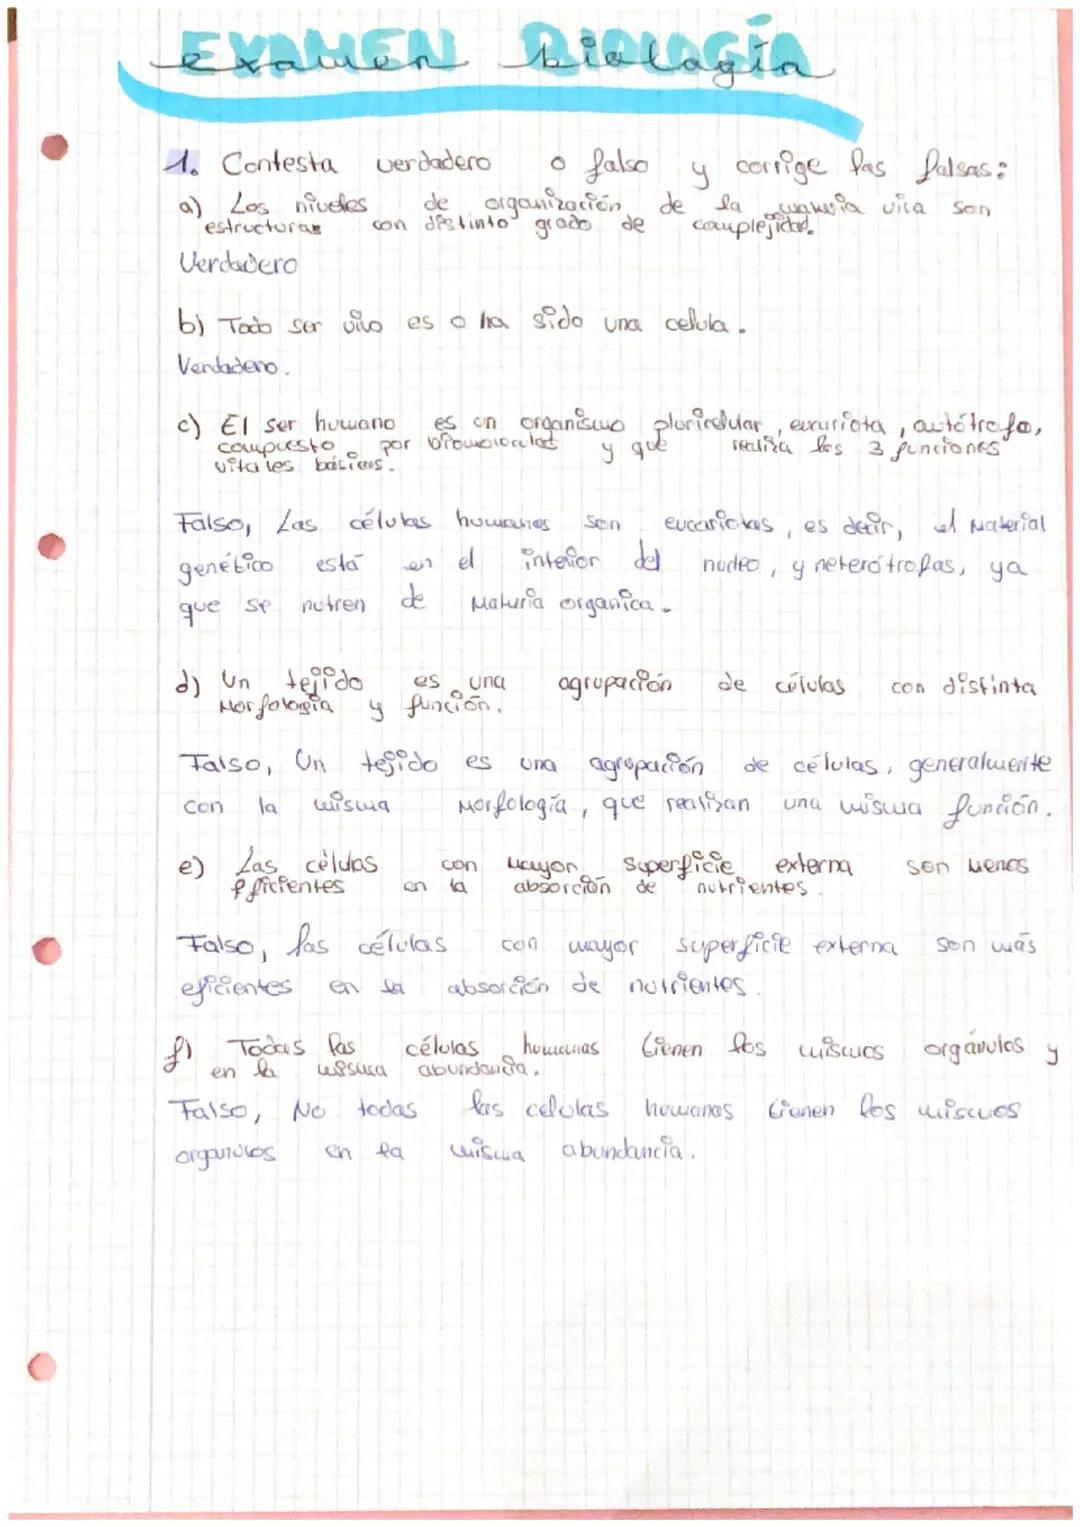 EXAMEN BIOLOGÍA
examen biología
1. Contesta verdadero o falso y corrige las falsas:
a) Los niveles de organización de la materia viva son
estructuras con distinto grado de complejidad.
Verdadero
b) Todo ser vivo es o ha sido una celula.
Verdadero.
c) El ser humano es un organismo pluricelular, eucariota, autótrofo,
compuesto por biomoleculas y que realiza las 3 funciones
vitales básicas.
Falso, Las células humanas son eucariotas, es decir, el Material
genético está en el interior del nucleo, y heterótrofas, ya
que se nutren de Materia organica.
d) Un tejido es una agrupación de células con distinta
Morfología y función.
Falso, Un tejido es una agrupación de células, generalmente
con la misma Morfología, que realizan una misma función.
e) Las células con mayor superficie externa son menos
eficientes en la absorción de nutrientes.
Falso, las células con mayor superficie externa son más
eficientes en la absorción de nutrientes.
f) Todas las células humanas tienen los mismos orgánulos y
en la misma abundancia.
Falso, No todas las celulas humanas tienen los mismos
organulos en la misma abundancia.